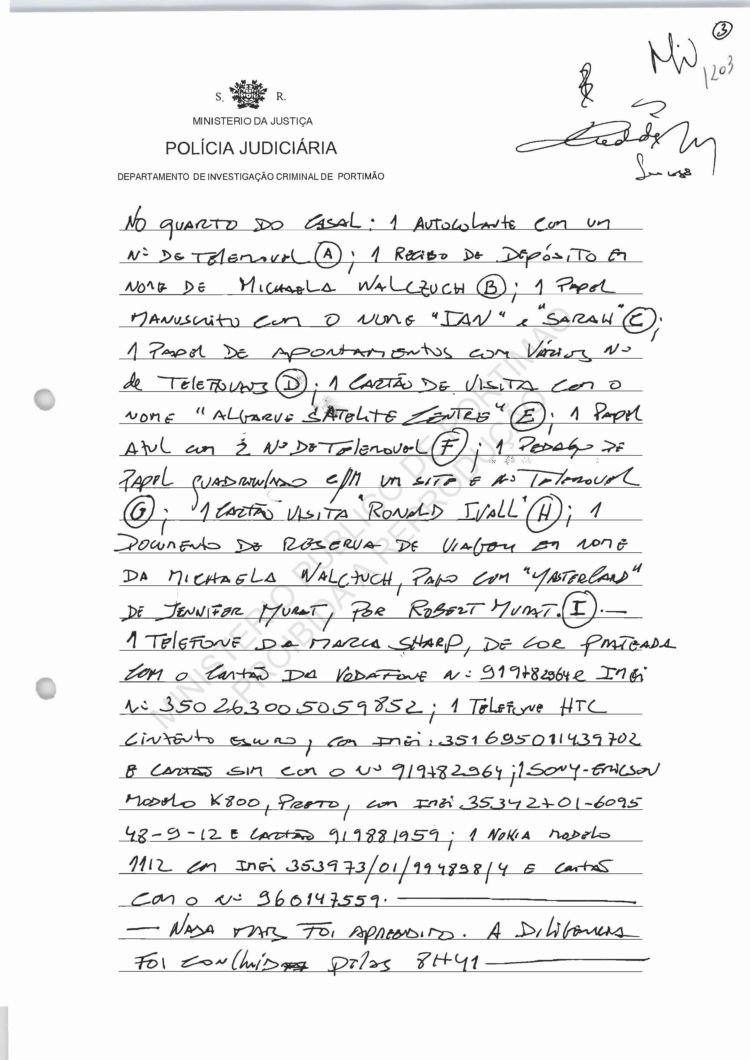 3
1203
S. R.
MINISTERIO DA JUSTIÇA
POLÍCIA JUDICIÁRIA
DEPARTAMENTO DE INVESTIGAÇÃO CRIMINAL DE PORTIMÃO
NO QUARTO DO CASAL: 1 AUTOCOLANTE COM UM
Nº DE TELEMOVEL (A); 1 RECIBO DE DEPÓSITO EM
NOME DE MICHAELA WALCZUCH (B); 1 PAPEL
MANUSCRITO COM O NOME "IAN" e "SARAH" (C);
1 PAPEL DE APONTAMENTOS COM VÁRIOS Nº
de TELEFONES (D); 1 CARTÃO DE VISITA COM O
NOME "ALGARVE SATELITE CENTRE" (E); 1 PAPEL
AZUL COM 2 Nº DE TELEMOVEL (F); 1 PEDAÇO DE
PAPEL QUADRICULADO C/M UM SITE E Nº TELEMOVEL
(G); 1 CARTÃO VISITA "RONALD IVALL" (H); 1
DOCUMENTO DE RESERVA DE VIAGEM EM NOME
DA MICHAELA WALCZUCH, PAGO COM "MASTERCARD"
DE JENNIFER MURAT, POR ROBERT MURAT. (I). —
1 TELEFONE DA MARCA SHARP, DE COR PRATEADA
COM O CARTÃO DA VODAFONE Nº 919782964 E IMEI
Nº 350263005059852; 1 TELEFONE HTC
CINZENTO ESCURO, COM IMEI: 351695011439702
E CARTÃO SIM COM O Nº 919782964; 1 SONY-ERICSON
MODELO K800, PRETO, COM IMEI 35342701-6095
48-9-12 E CARTÃO 919881959; 1 NOKIA MODELO
1112 COM IMEI 353973/01/994898/4 E CARTÃO
COM O Nº 960147559. —
— NADA MAIS FOI APREENDIDO. A DILIGENCIA
FOI CONCLUIDA pelas 8H41 —
MINISTÉRIO PÚBLICO DE PORTIMÃO
PROIBIDA A REPRODUÇÃO